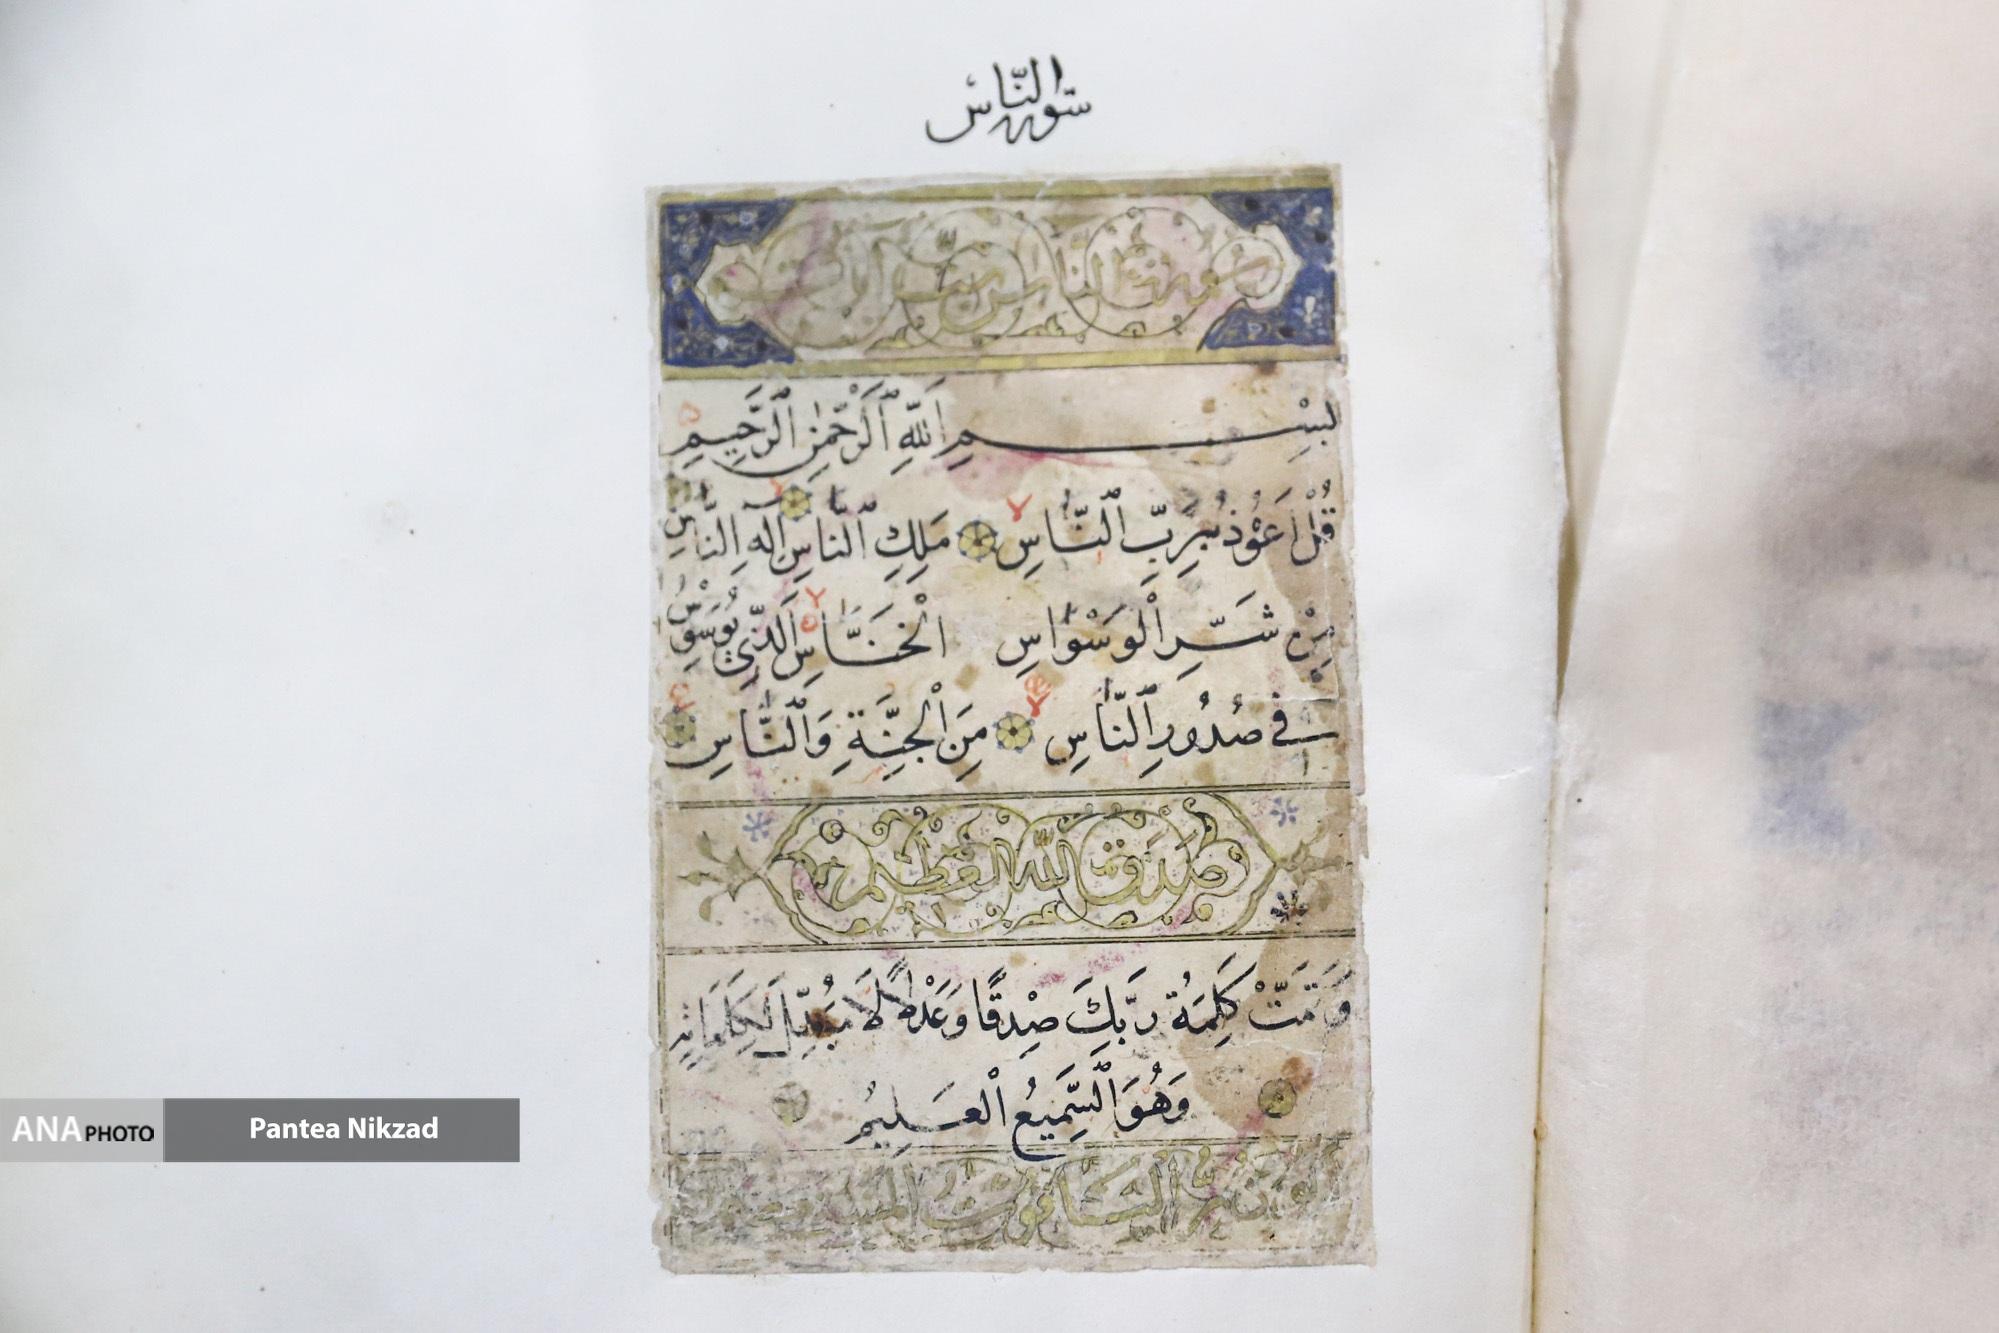 سورة الناس
بِسْمِ اللهِ الرَّحْمٰنِ الرَّحِيمِ
قُلْ اَعُوْذُ بِرَبِّ النَّاسِ مَلِكِ النَّاسِ اِلٰهِ النَّاسِ
مِنْ شَرِّ الْوَسْوَاسِ الْخَنَّاسِ الَّذِيْ يُوَسْوِسُ
فِي صُدُورِ النَّاسِ مِنَ الْجِنَّةِ وَالنَّاسِ
صَدَقَ اللهُ العَظيم
وَتَمَّتْ كَلِمَةُ رَبِّكَ صِدْقًا وَعَدْلًا لَا مُبَدِّلَ لِكَلِمَاتِهِ
وَهُوَ السَّمِيعُ الْعَلِيمُ
ANA PHOTO Pantea Nikzad